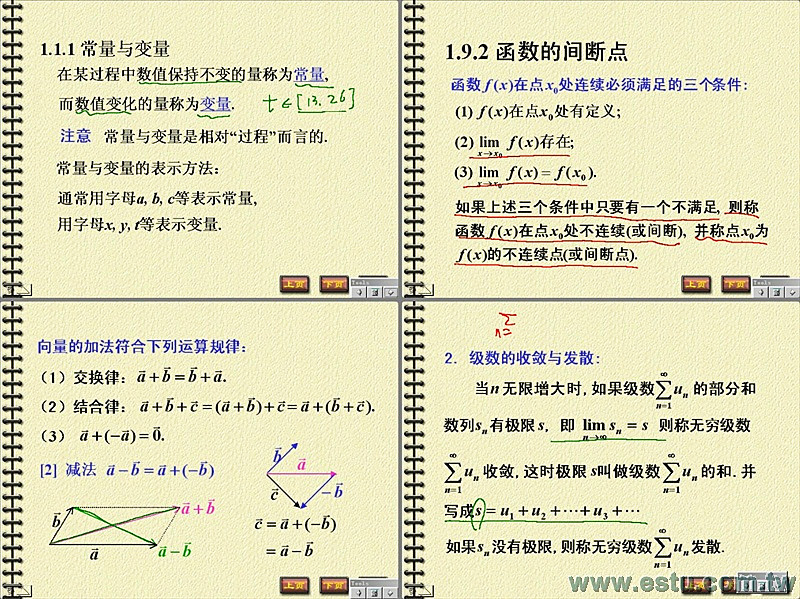 1.1.1 常量与变量
在某过程中数值保持不变的量称为常量,
而数值变化的量称为变量. t ∈ [13, 26]
注意 常量与变量是相对“过程”而言的.
常量与变量的表示方法：
通常用字母a, b, c等表示常量,
用字母x, y, t等表示变量.
上页 下页
1.9.2 函数的间断点
函数 f (x)在点x₀处连续必须满足的三个条件:
(1) f (x)在点x₀处有定义;
(2) lim f (x)存在;
x→x₀
(3) lim f (x) = f (x₀).
x→x₀
如果上述三个条件中只要有一个不满足, 则称
函数 f (x)在点x₀处不连续(或间断), 并称点x₀为
f (x)的不连续点(或间断点).
上页 下页
向量的加法符合下列运算规律:
（1）交换律: a⃗ + b⃗ = b⃗ + a⃗.
（2）结合律: a⃗ + b⃗ + c⃗ = (a⃗ + b⃗) + c⃗ = a⃗ + (b⃗ + c⃗).
（3） a⃗ + (−a⃗) = 0⃗.
[2] 减法 a⃗ − b⃗ = a⃗ + (−b⃗)
b⃗ a⃗
c⃗ −b⃗
b⃗ a⃗ + b⃗
a⃗ a⃗ − b⃗
c⃗ = a⃗ + (−b⃗)
= a⃗ − b⃗
上页 下页
Σ
n=
2. 级数的收敛与发散:
当n无限增大时, 如果级数∑uₙ 的部分和
∞
n=1
数列sₙ有极限s, 即 lim sₙ = s 则称无穷级数
n→∞
∑uₙ 收敛, 这时极限s叫做级数∑uₙ 的和. 并
∞ ∞
n=1 n=1
写成s = u₁ + u₂ + ⋯ + u₃ + ⋯
如果sₙ没有极限, 则称无穷级数∑uₙ 发散.
∞
n=1
www.estu.com.tw